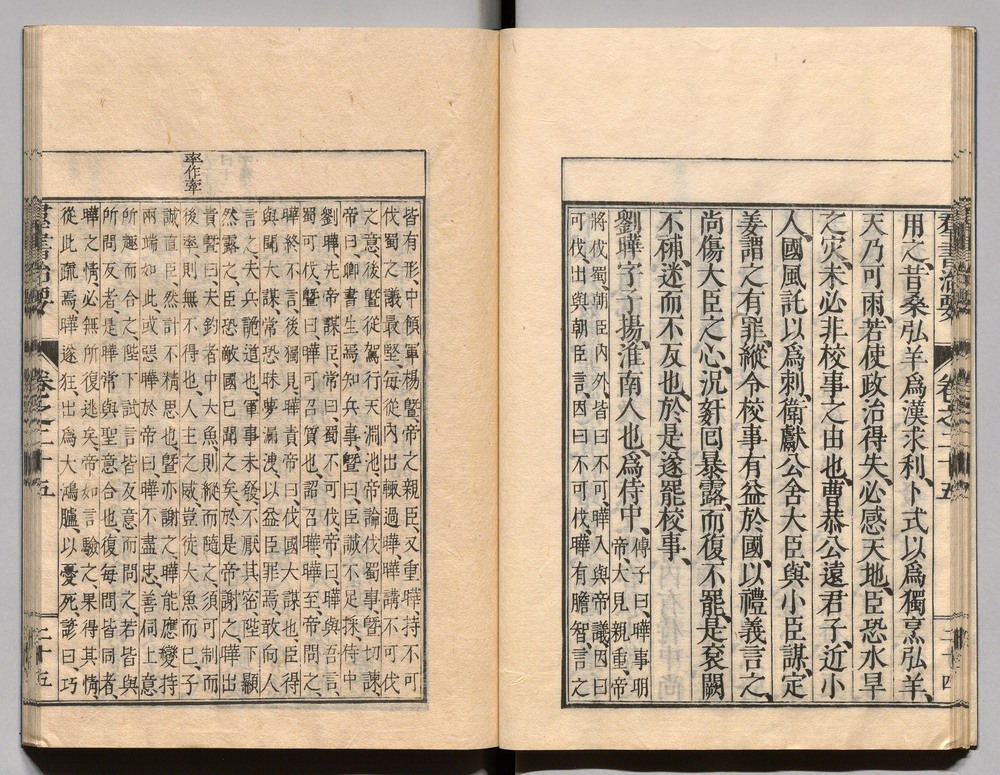 羣書治要 卷之二十五 二十四
用之、昔桑弘羊爲漢求利、卜式以爲獨烹弘羊、
天乃可雨、若使政治得失、必感天地、臣恐水旱
之災、未必非校事之由也、曹恭公遠君子、近小
人、國風託以爲刺、衛獻公舍大臣、與小臣謀、定
姜謂之有罪、縱令校事有益於國、以禮義言之、
尚傷大臣之心、況姧回暴露、而復不罷、是袞闕
不補、迷而不反也、於是遂罷校事、
劉曄字子揚、淮南人也、爲侍中、
傅子曰、曄事明
帝、大見親重、帝
將伐蜀、朝臣內外、皆曰不可、曄入與帝議、因曰
可伐、出與朝臣言、因曰不可伐、曄有膽智、言之
皆有形、中領軍楊曁、帝之親臣、又重曄、持不可
伐蜀之議最堅、每從內出、輒過曄、曄講不可伐
之意、後曁從駕行天淵池、帝論伐蜀事、曁切諫、
帝曰、卿書生、焉知兵事、曁曰、臣誠不足採、侍中
劉曄、先帝謀臣、常曰蜀不可伐、帝曰、曄與吾言、
蜀可伐、曁曰、曄可召質也、詔召曄、曄至、帝問之、
曄終不言、後獨見、曄責帝曰、伐國大謀也、臣得
與聞大謀、常恐眯夢漏洩、以益臣罪、焉敢向人
言之、夫兵詭道也、軍事未發、不厭其密、陛下顯
然露之、臣恐敵國已聞之矣、於是帝謝之、曄出
責曁曰、夫釣者中大魚、則縱而隨之、須可制而
後率、則無不得也、人主之威、豈徒大魚而已、子
誠直臣、然計不精思也、曁亦謝之、曄能應變持
兩端如此、或惡曄於帝曰、曄不盡忠、善伺上意
所趣而合之、陛下試言、皆反意而問之、若皆與
所問反者、是曄常與聖意合也、復每問皆同者、
曄之情、必無所復逃矣、帝如言驗之、果得其情、
從此疏焉、曄遂狂、出爲大鴻臚、以憂死、諺曰、巧
率作牽
羣書治要 卷之二十五 二十五